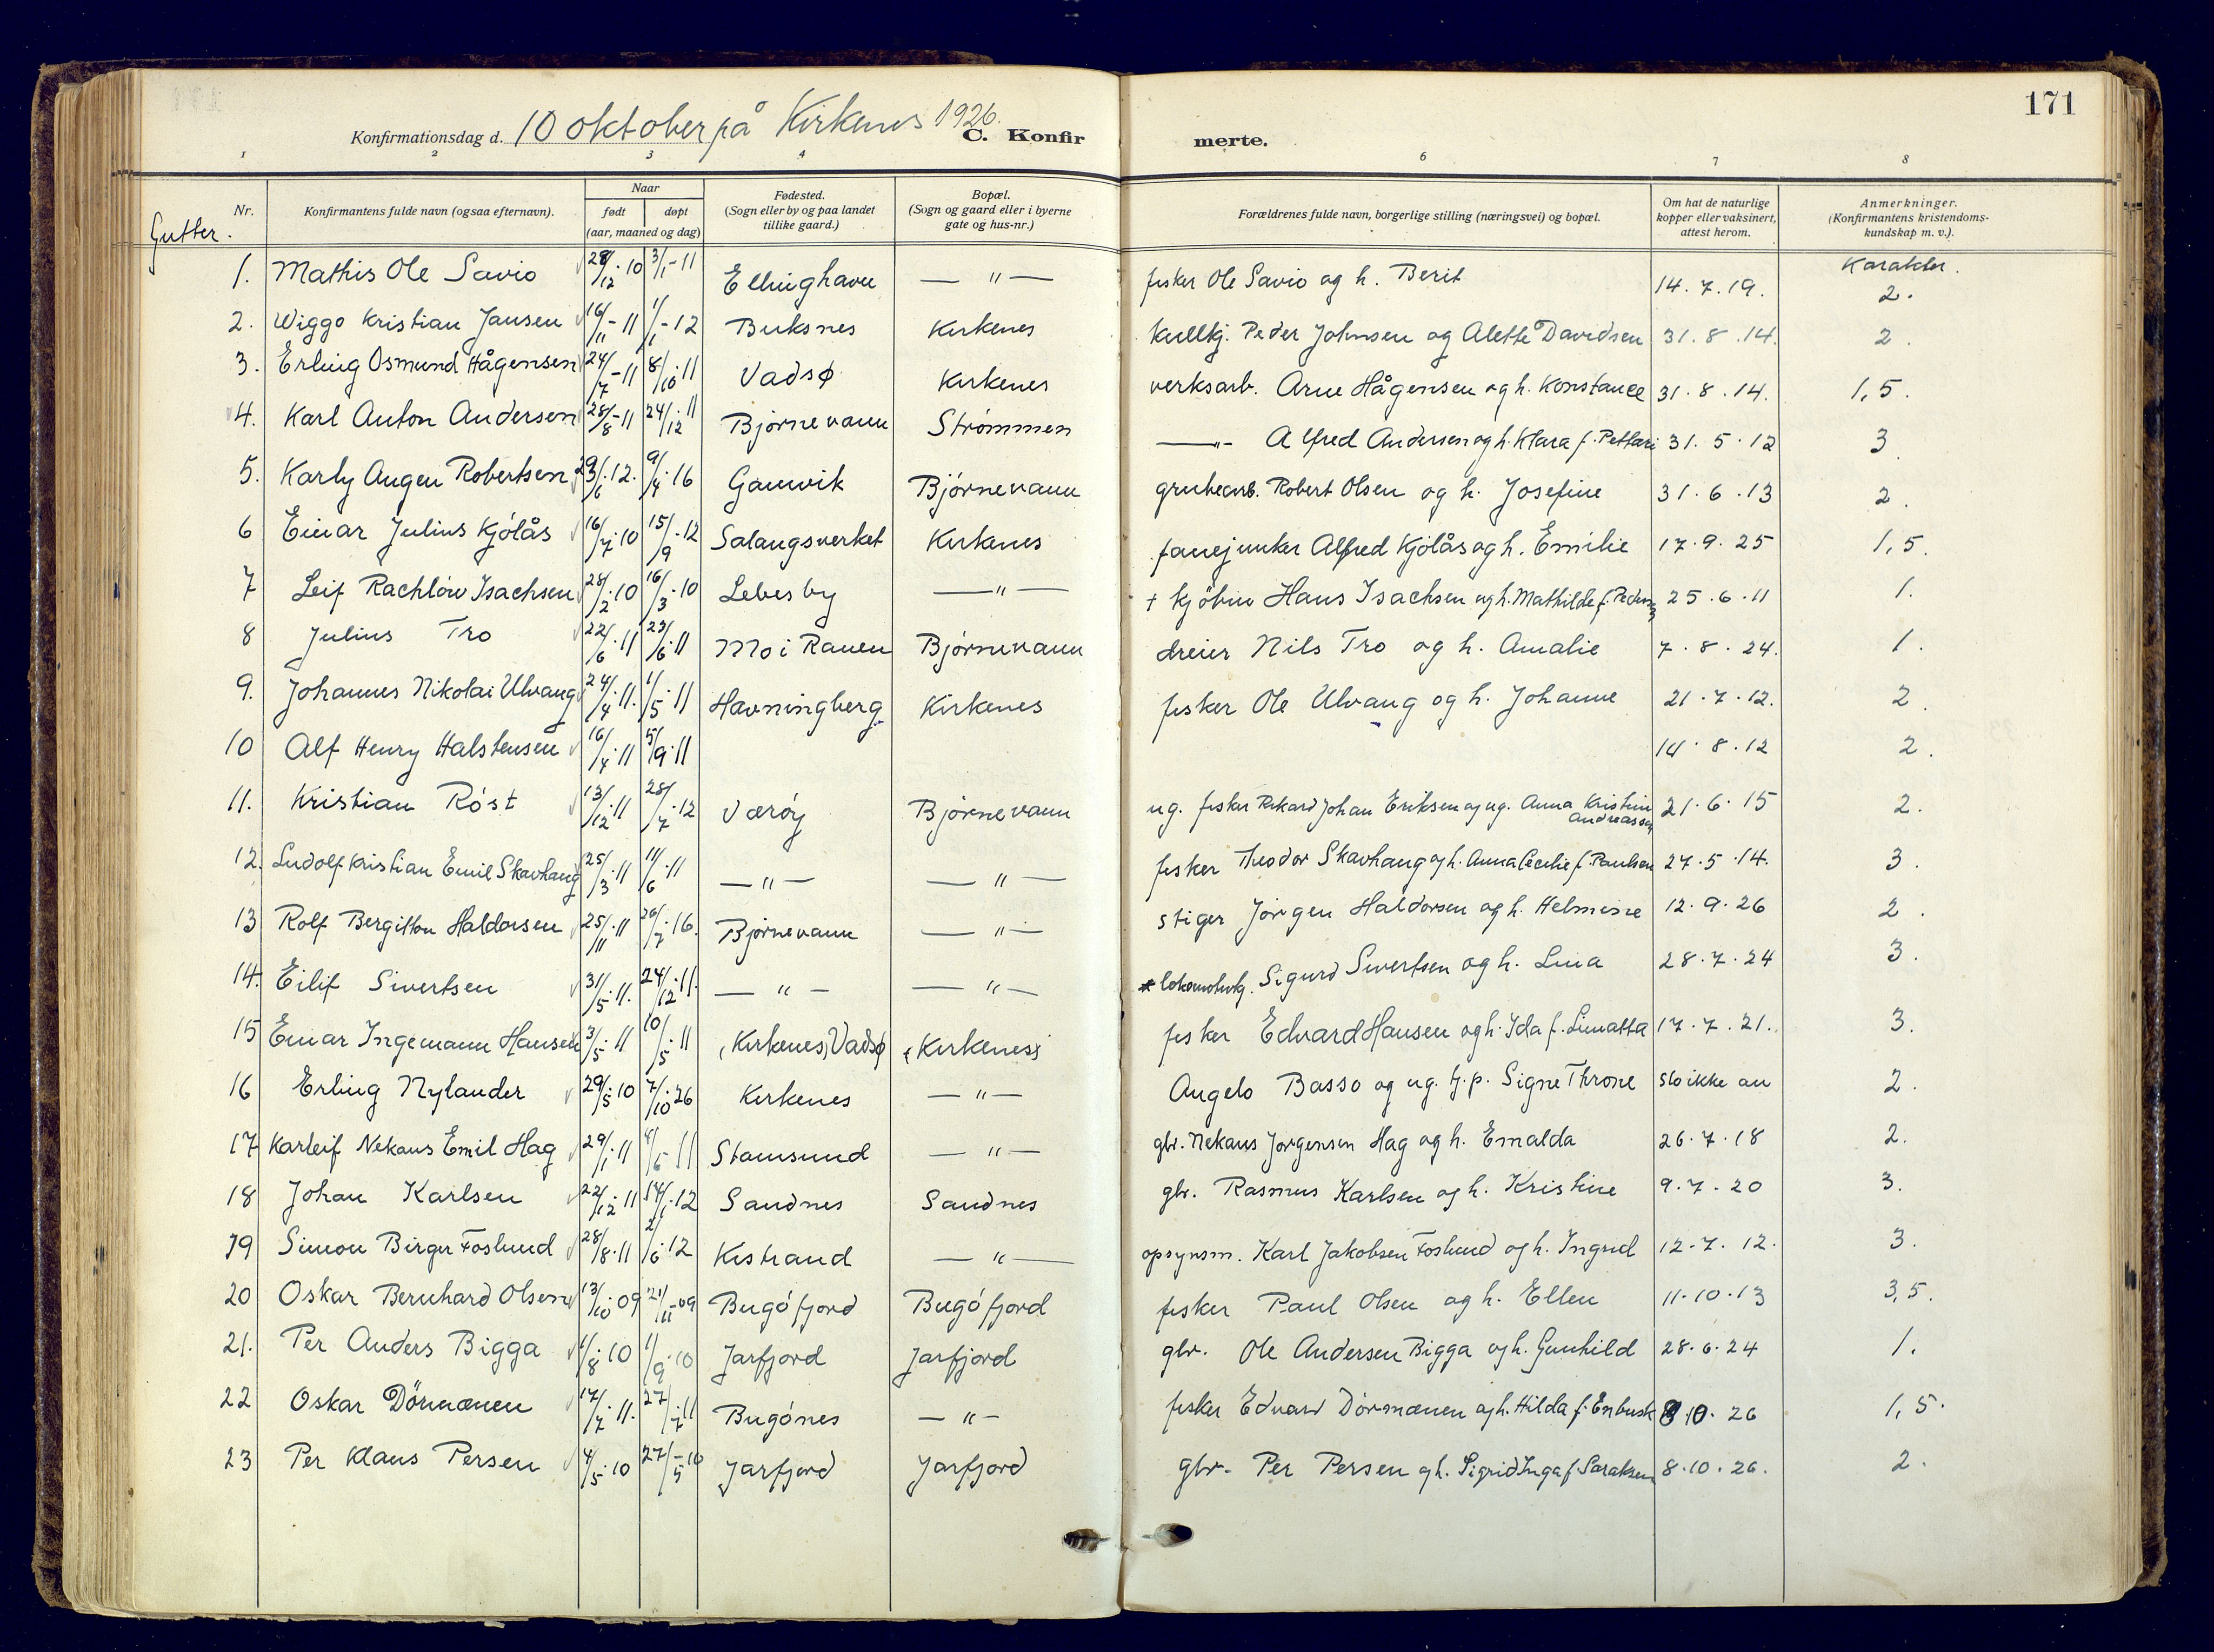 171
Konfirmationsdag d. 10 oktober på Kirkenes 1926.
C. Konfirmerte.
1 2 3 4 6 7 8
Nr. Konfirmantens fulde navn (ogsaa efternavn). Naar født døpt (aar, maaned og dag) Fødested. (Sogn eller by og paa landet tillike gaard.) Bopæl. (Sogn og gaard eller i byerne gate og hus-nr.) Forældrenes fulde navn, borgerlige stilling (næringsvei) og bopæl. Om hat de naturlige kopper eller vaksinert, attest herom. Anmerkninger. (Konfirmantens kristendoms-kundskap m. v.).
Gutter.
Karakter.
1. Mathis Ole Savio 28/12.10 3/1-11 Ellinghavn — " — fisker Ole Savio og h. Berit 14.7.19. 2.
2. Wiggo Kristian Jansen 16/11-11 1/1-12 Buksnes Kirkenes kullkj. Peder Johnsen og Alette Davidsen 31.8.14. 2.
3. Erling Osmund Hågensen 24/7-11 8/10.11 Vadsø Kirkenes verksarb. Arne Hågensen og h. Konstance 31.8.14. 1,5.
4. Karl Anton Andersen 28/8-11 24/12.11 Bjørnevann Strømmen — " — Alfred Andersen og h. Klara f. Pettari 31.5.12 3.
5. Karly Angen Robertsen 29/6.12. 9/4.16 Gamvik Bjørnevann grubearb. Robert Olsen og h. Josefine 31.6.13 2.
6 Einar Julius Kjölås 16/7.10 15/9-12 Salangsverket Kirkenes fanejunker Alfred Kjölås og h. Emilie 17.9.25 1,5.
7 Leif Rachlöw Isachsen 28/2.10 16/3.10 Lebesby — " — + kjöbm Hans Isachsen og h. Mathilde f. Pedersen 25.6.11 1.
8 Julius Tro 22/6.11 23/6.11 Mo i Ranen Bjørnevann dreier Nils Tro og h. Amalie 7.8.24. 1.
9. Johannes Nikolai Ulvang 24/4.11. 1/5.11 Havningberg Kirkenes fisker Ole Ulvang og h. Johanne 21.7.12. 2.
10 Alf Henry Halstensen 16/4.11 5/9.11 14.8.12 2.
11. Kristian Röst 13/12.11 28/7.12 Værøy Bjørnevann ug. fisker Rikard Johan Eriksen og ug. Anna Kristine Andreassen 21.6.15 2.
12. Ludolf Kristian Emil Skavhaug 25/3.11 11/6.11 — " — — " — fisker Theodor Skavhaug og h. Anna Cecilie f. Paulsen 27.5.14. 3.
13 Rolf Bergitton Haldorsen 25/11.11 26/7.16. Bjørnevann — " — stiger Jörgen Haldorsen og h. Helmine 12.9.26 2.
14. Eilif Sivertsen 31/5.11. 24/12.11. — " — — " — Sigurd Sivertsen og h. Lina 28.7.24 3.
15 Einar Ingemann Hansen 3/5.11 10/5.11 (Kirkenes) Vadsø (Kirkenes) fisker Edvard Hansen og h. Ida f. Limatta 17.7.21. 3.
16 Erling Nylander 29/5.10 7/10.26 Kirkenes — " — Angelo Basso og ug. tj.p. Signe Throne slo ikke an 2.
17 Karleif Nekaus Emil Hag 29/1.11 4/6 11 Stamsund — " — gbr. Nekaus Jørgensen Hag og h. Emalda 26.7.18 2.
18 Johan Karlsen 22/12.11 14/1.12 Sandnes Sandnes gbr. Rasmus Karlsen og h. Kristine 9.7.20 3.
19 Simon Birger Foslund 28/8.11 2/6.12 Kistrand — " — opsynsm. Karl Jakobsen Foslund og h. Ingrid 12.7.12. 3.
20 Oskar Bernhard Olsen 13/10.09 21/11-09 Bugöfjord Bugöfjord fisker Paul Olsen og h. Ellen 11.10.13 3,5.
21. Per Anders Bigga 1/8.10 1/9.10 Jarfjord Jarfjord gbr. Ole Andersen Bigga og h. Gunhild 28.6.24 1.
22 Oskar Dörmænen 17/7.11. 27/7.11 Bugönes — " — fisker Edvard Dörmænen og h. Hilda f. Enbusk 8.10.26 1,5.
23 Per Klaus Persen 4/5.10 27/5-10 Jarfjord Jarfjord gbr. Per Persen og h. Sigrid Inga f. Saraksen 8.10.26. 2.